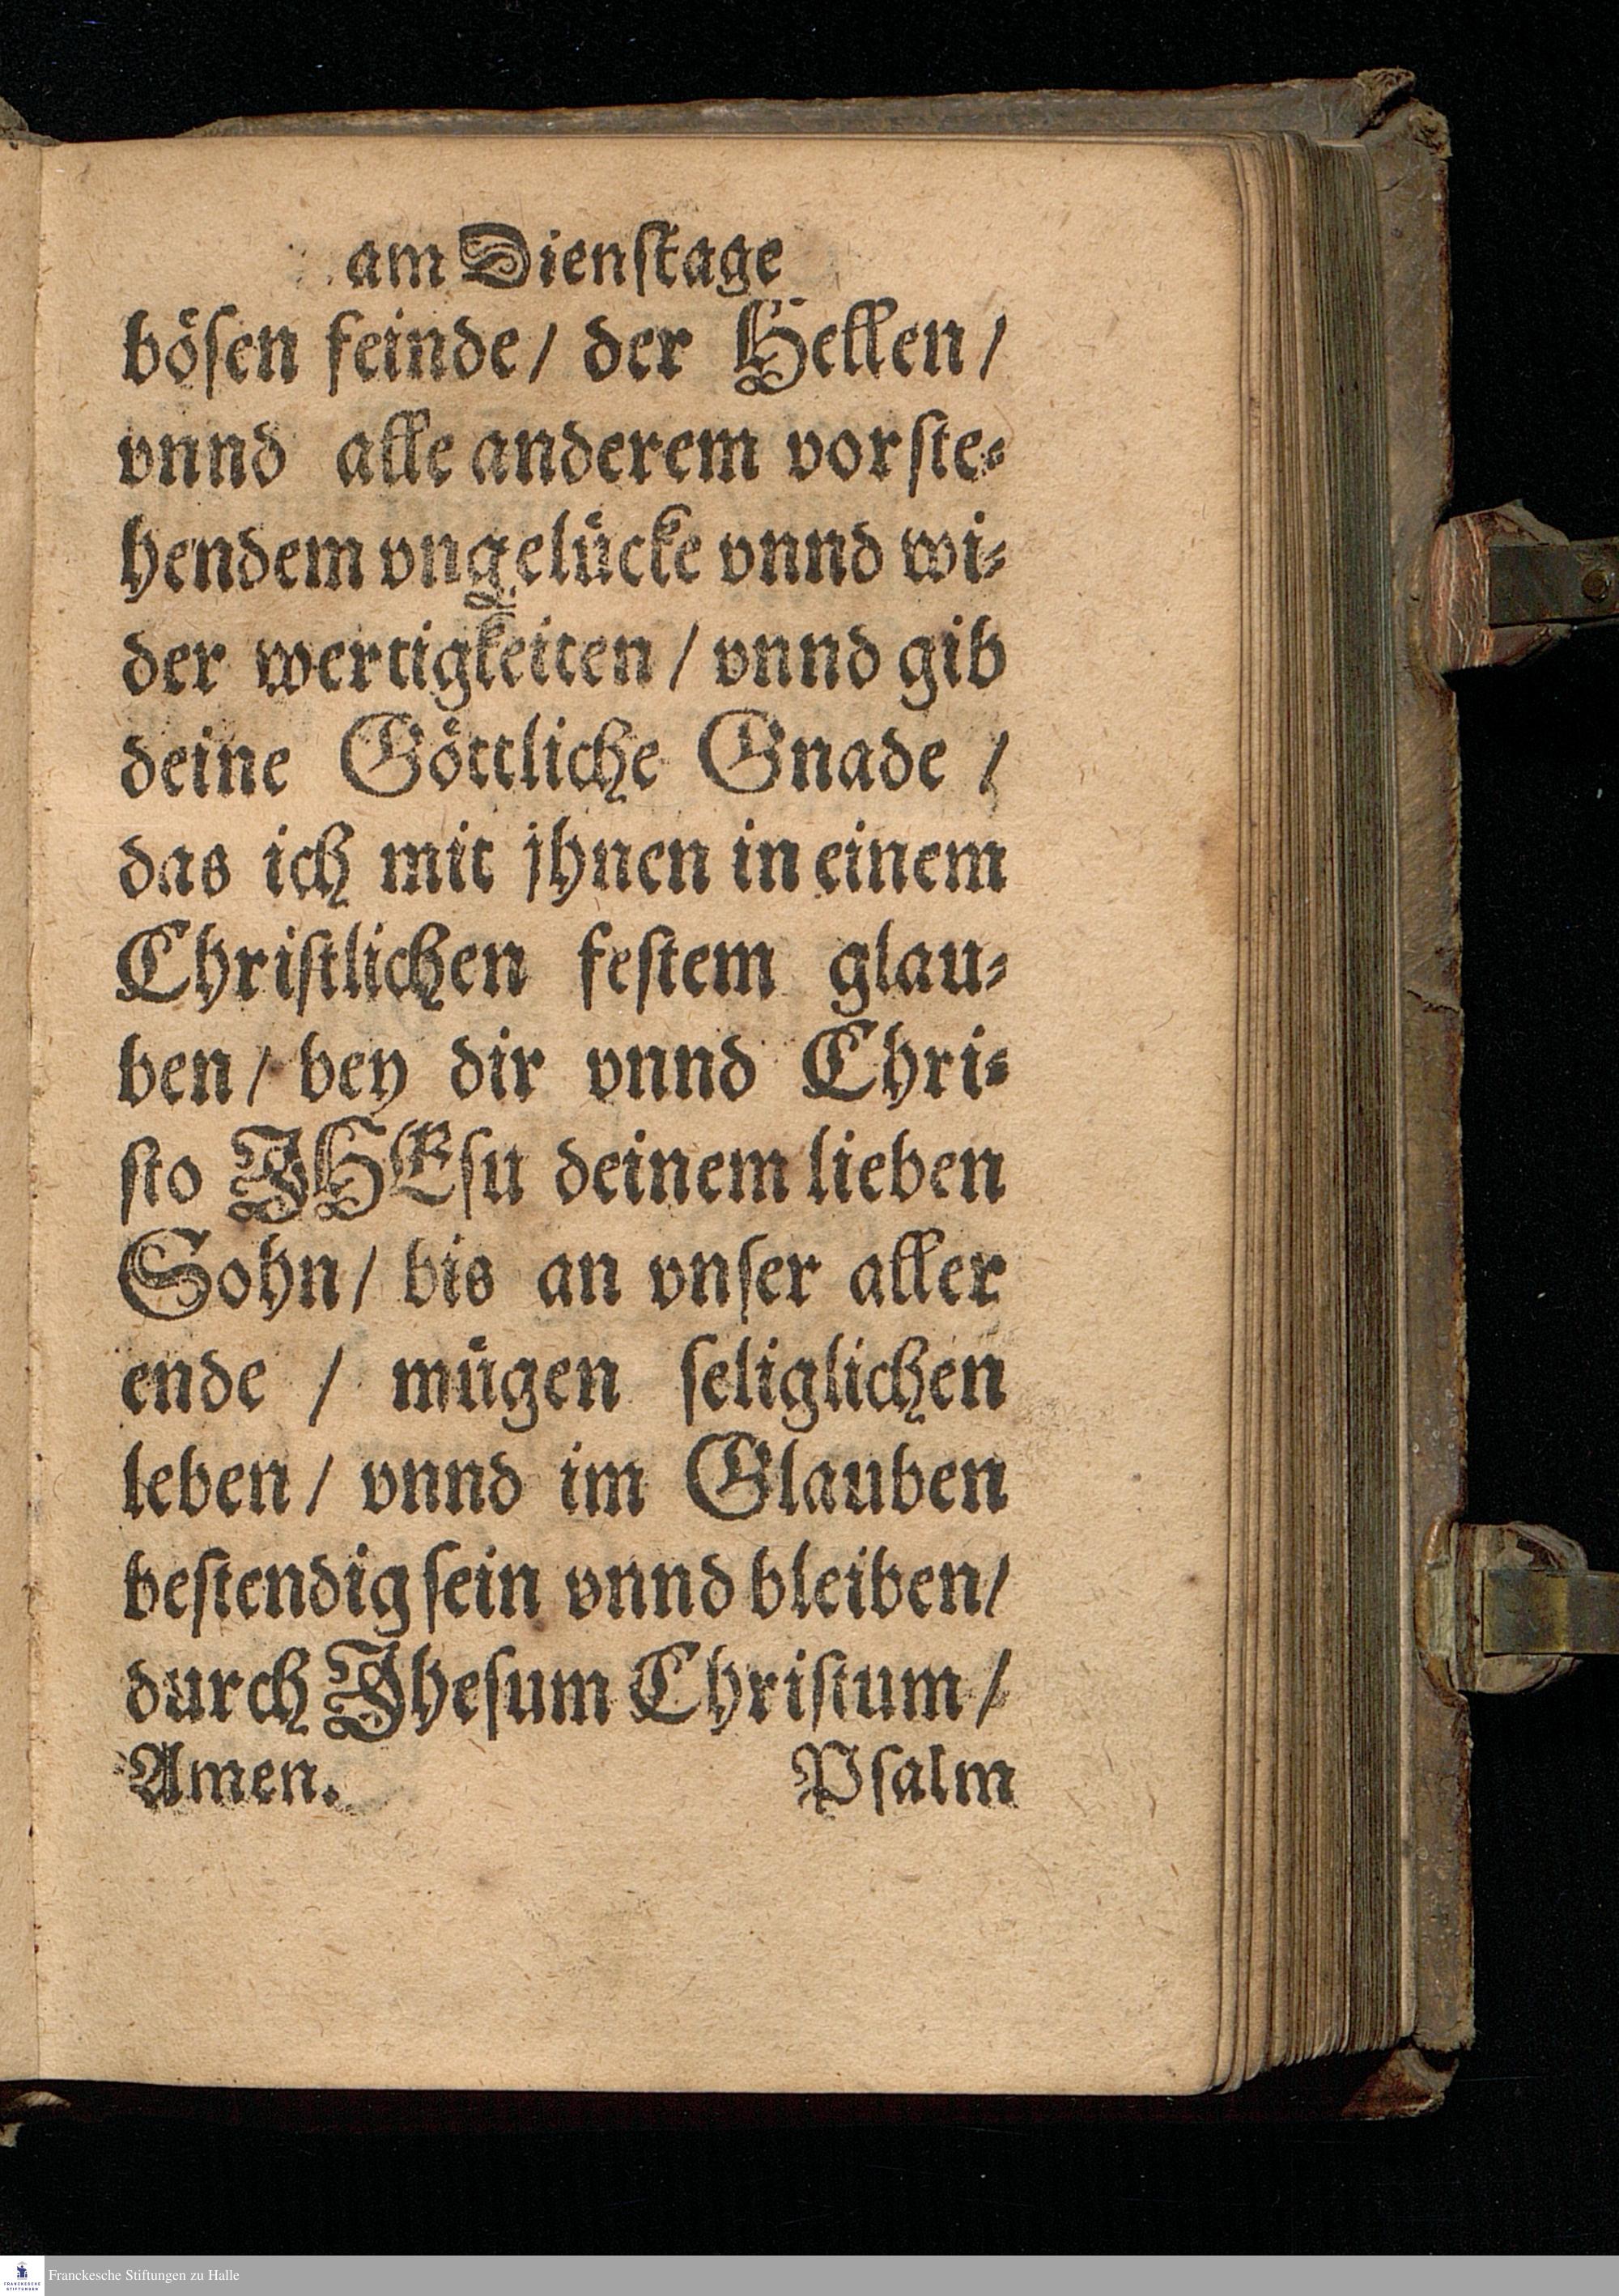 am Dienſtage
böſen feinde/ der Hellen/
vnnd alle anderem vorſte⸗
hendem vngelücke vnnd wi⸗
der wertigkeiten / vnnd gib
deine Göttliche Gnade /
das ich mit jhnen in einem
Chriſtlichen feſtem glau⸗
ben/ bey dir vnnd Chri⸗
ſto JHEſu deinem lieben
Sohn/ bis an vnſer aller
ende / mügen ſeliglichen
leben/ vnnd im Glauben
beſtendig ſein vnnd bleiben/
durch Jheſum Chriſtum /
Amen. Pſalm
Franckesche Stiftungen zu Halle
FRANCKESCHE
STIFTUNGEN